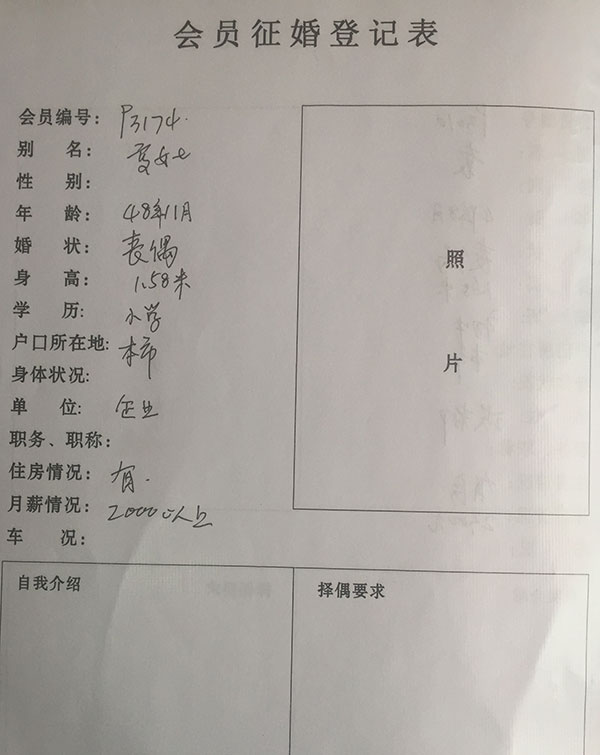 会员征婚登记表
会员编号: P3174.
别 名: 夏女士
性 别:
年 龄: 48年11月
婚 状: 丧偶
身 高: 1.58米
学 历: 小学
户口所在地: 本市
身体状况:
单 位: 企业
职务、职称:
住房情况: 有.
月薪情况: 2000以上
车 况:
照
片
自我介绍
择偶要求